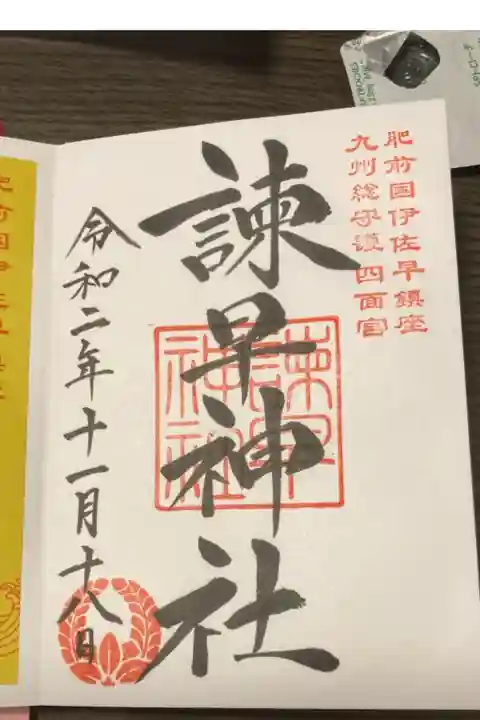 肥前国伊佐早鎮座
九州総守護四面宮
諫早神社
諫早神社
令和二年十一月十八日